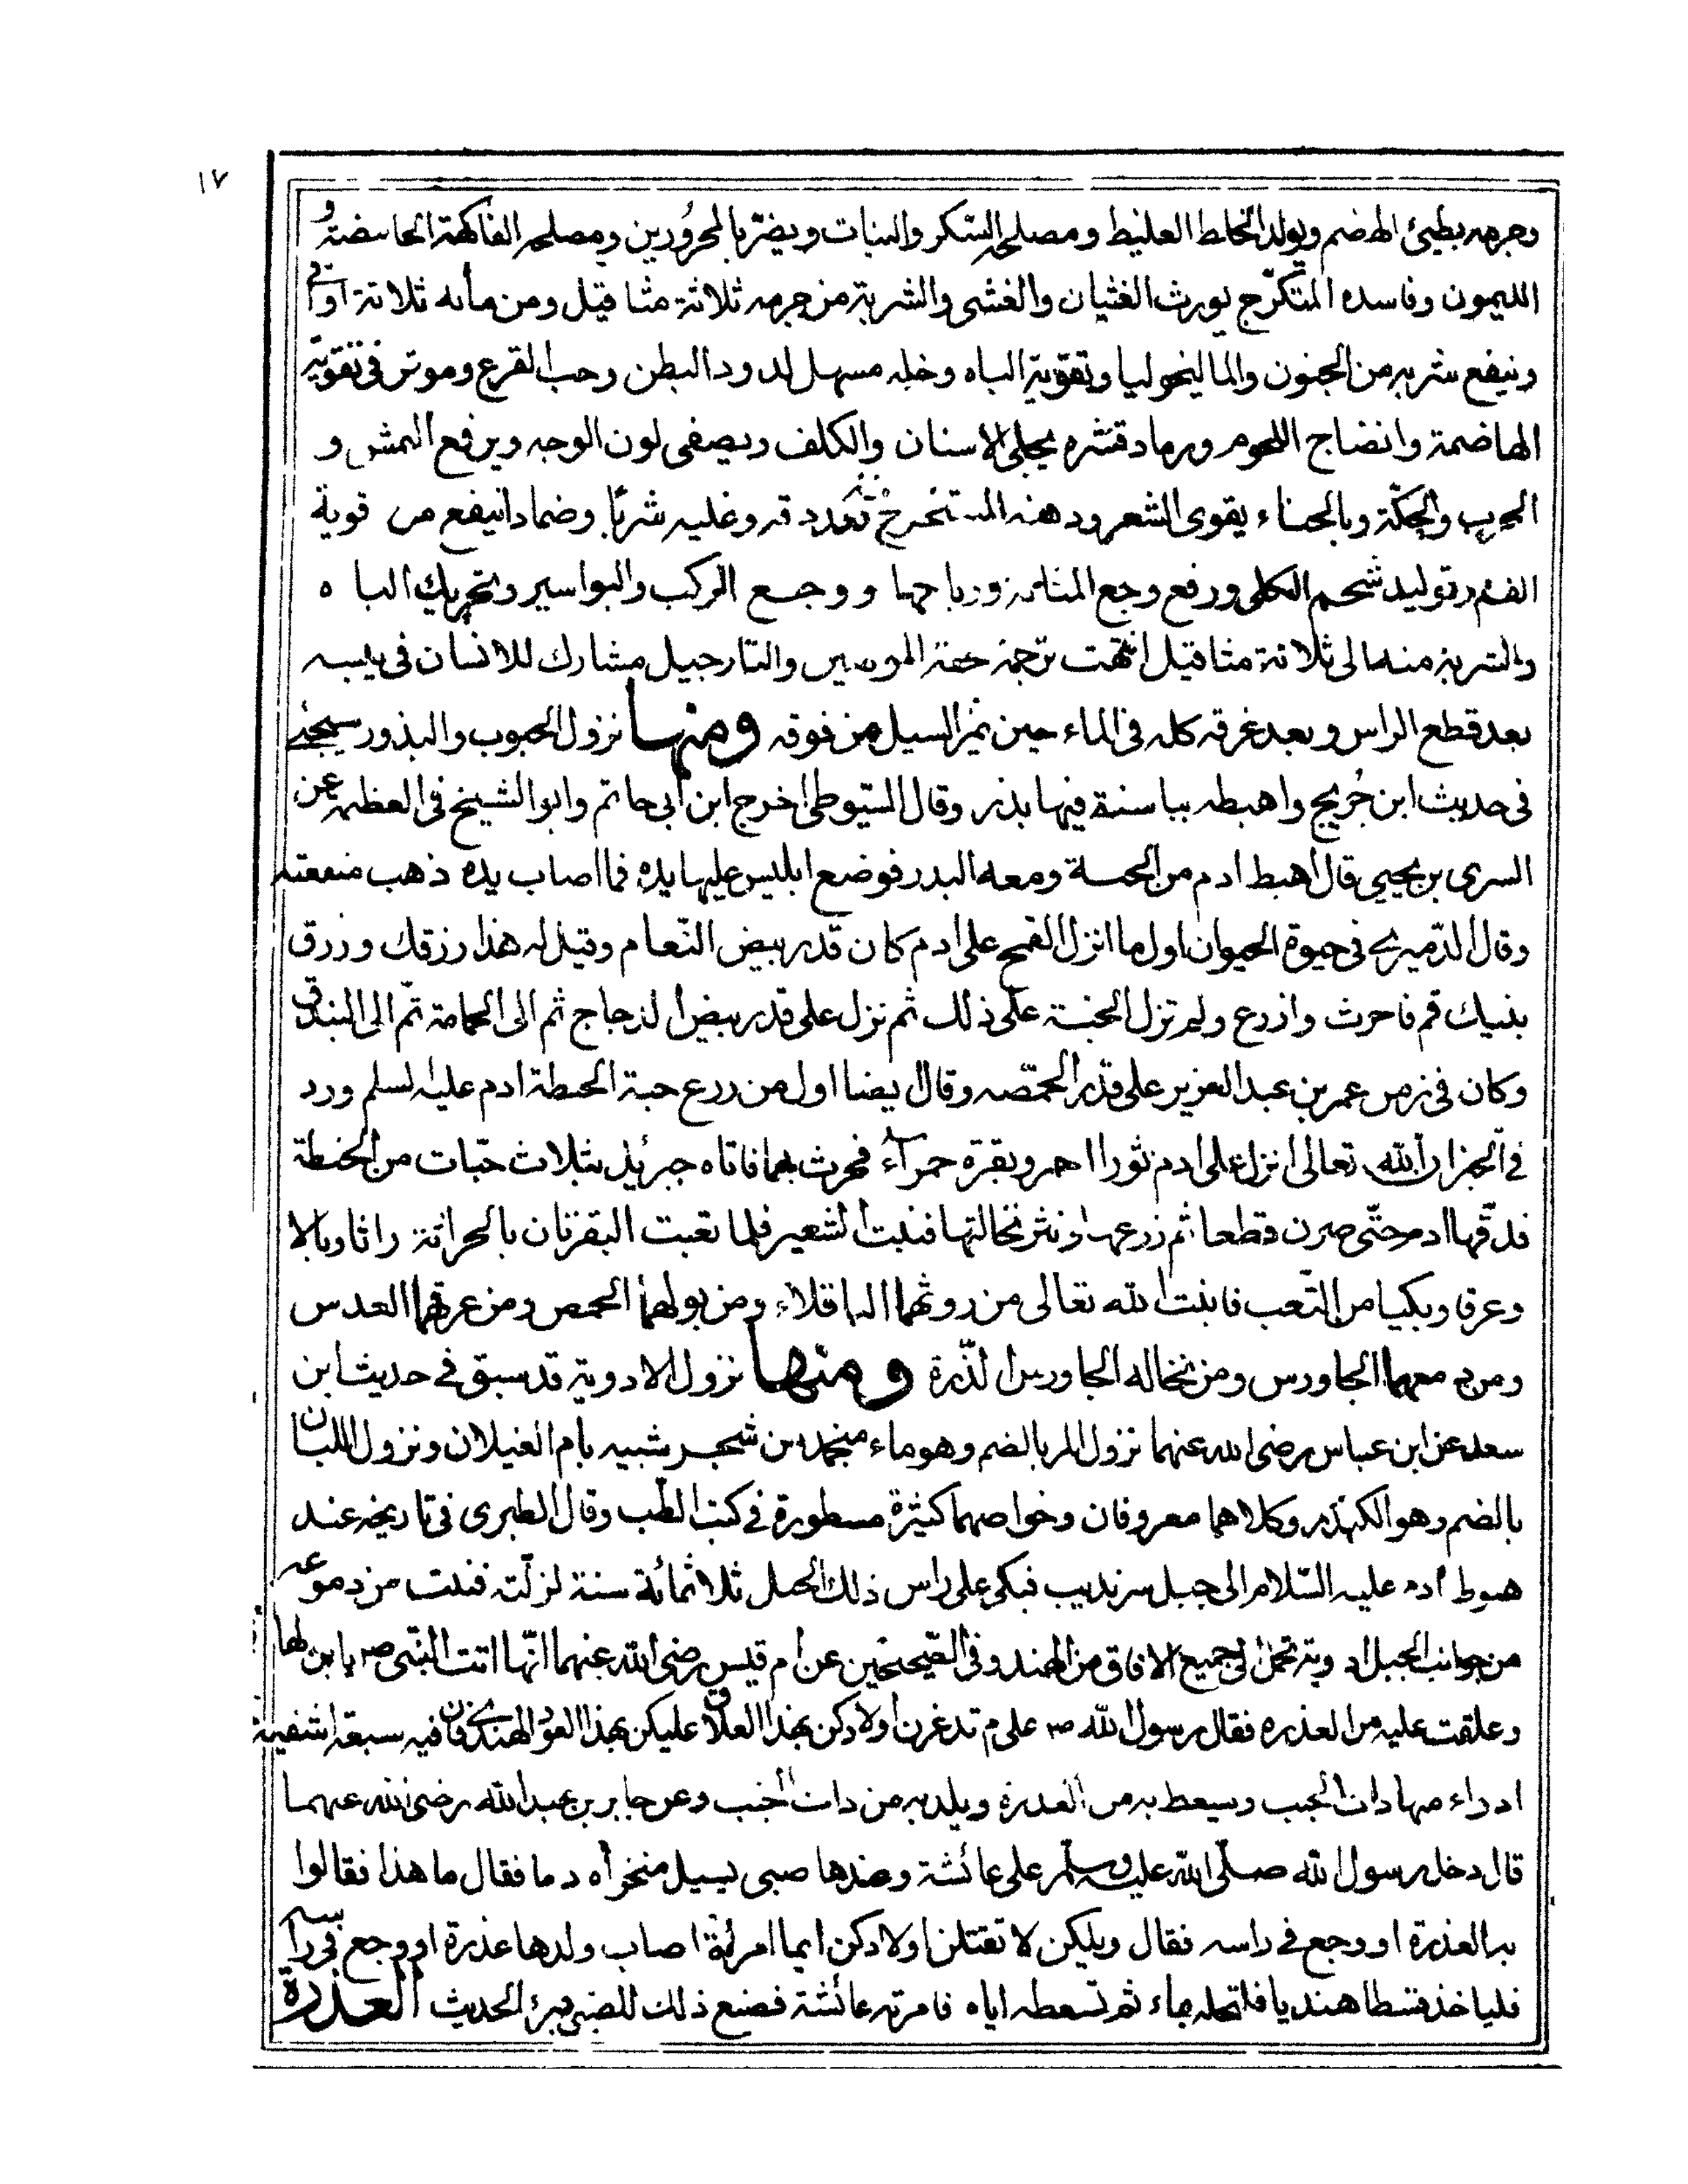 ١٧
وجرمه بطيئ الهضم ويولد الخلط الغليظ ومصلحه السّكر والنبات ويضرّ بالمحرُورين ومصلحه الفاكهة الحامضة و
الليمون وفاسده المتكرّج يورث الغثيان والغشى والشربة من جرمه ثلاثة مثاقيل ومن مائه ثلاثة اواقى
وينفع شربه من الجنون والماليخوليا وتقوية الباه وخله مسهل لدود البطن وحب القرع وموثر فى تقوية
الهاضمة وانضاج اللحوم ورماد قشره يجلى الاسنان والكلف ويصفى لون الوجه ويرفع النمش و
الجرب والحكّة وبالحناء يقوى الشعر ودهنه المستخرج بعد دقه وغليه شربًا وضمادا ينفع من قوية
الفم وتوليد شحم الكلى ورفع وجع المثانة ورياحها ووجع الركب والبواسير وتحريك الباه
والشربة منه الى ثلاثة مثاقيل انتهت ترجمة تحفة المومنين والنارجيل مشارك للانسان فى يبسه
بعد قطع الراس وبعد غرقه كله فى الماء حين يمر السيل من فوقه ومنها نزول الحبوب والبذور سيجئ
فى حديث ابن جُريج واهبطه بباسنة فيها بذر وقال السّيوطى اخرج ابن أبى حاتم وابو الشيخ فى العظمة عن
السرى بن يحيى قال اهبط ادم من الجنة ومعه البذر فوضع ابليس عليها يده فما اصاب يده ذهب منفعته
وقال الدّميرى فى حيوة الحيوان اول ما انزل القمح على ادم كان قدر بيض النّعام وقيل له هذا رزقك ورزق
بنيك قم فاحرث وازرع ولم تزل الحبة على ذلك ثم نزل على قدر بيض الدجاج ثم الى الحمامة ثمّ الى البندق
وكان فى زمن عمر بن عبد العزيز على قدر الحمّصه وقال ايضا اول من زرع حبة الحنطة ادم عليه السلم ورد
فى الخبر ان الله تعالى انزل على ادم ثورا احمر وبقرة حمراء فحرث بهما فاتاه جبرئيل بثلاث حبّات من الحنطة
فدقّها ادم حتّى صرن قطعا ثم زرعها ونثر نخالتها فنبت الشعير فلما تعبت البقرتان بالحراثة راثا وبالا
وعرقا وبكيا من التّعب فانبت الله تعالى من روثهما الباقلاء ومن بولهما الحمص ومن عرقهما العدس
ومن دمعهما الجاورس ومن نخالة الجاورس الذّرة ومنها نزول الادوية قد سبق فى حديث ابن
سعد عن ابن عباس رضى الله عنهما نزول المر بالضم وهو ماء منجمد من شجر شبيه بام الغيلان ونزول اللبان
بالضم وهو الكندر وكلاهما معروفان وخواصهما كثيرة مسطورة فى كتب الطّب وقال الطبرى فى تاريخه عند
هبوط ادم عليه السّلام الى جبل سرنديب فبكى على راس ذلك الجبل ثلاثمائة سنة لزلّته فنبت من دموعه
من جوانب الجبل ادوية تحمل الى جميع الافاق من الهند وفى الصّحيحين عن ام قيس رضى الله عنهما انّها اتت النّبى صم بابن لها
وعلقت عليه من العذره فقال رسول الله صم على م تدغرن اولادكن بهذا العلاق عليكن بهذا العود الهندى فان فيه سبعة اشفية
ادواء منها ذات الجنب ويسعط به من العذرة ويلد به من ذات الجنب وعن جابر بن عبد الله رضى الله عنهما
قال دخل رسول الله صلّى الله عليه وسلّم على عائشة وعندها صبى يسيل منخراه دما فقال ما هذا فقالوا
به العذرة او وجع فى راسه فقال ويلكن لا تقتلن اولادكن ايما امرئة اصاب ولدها عذرة او وجع فى راسه
فلياخذ قسطا هنديا فلتحله بماء ثم تسعطه اياه فامرته عائشة فصنع ذلك للصّبى فبرئ الحديث العذرة